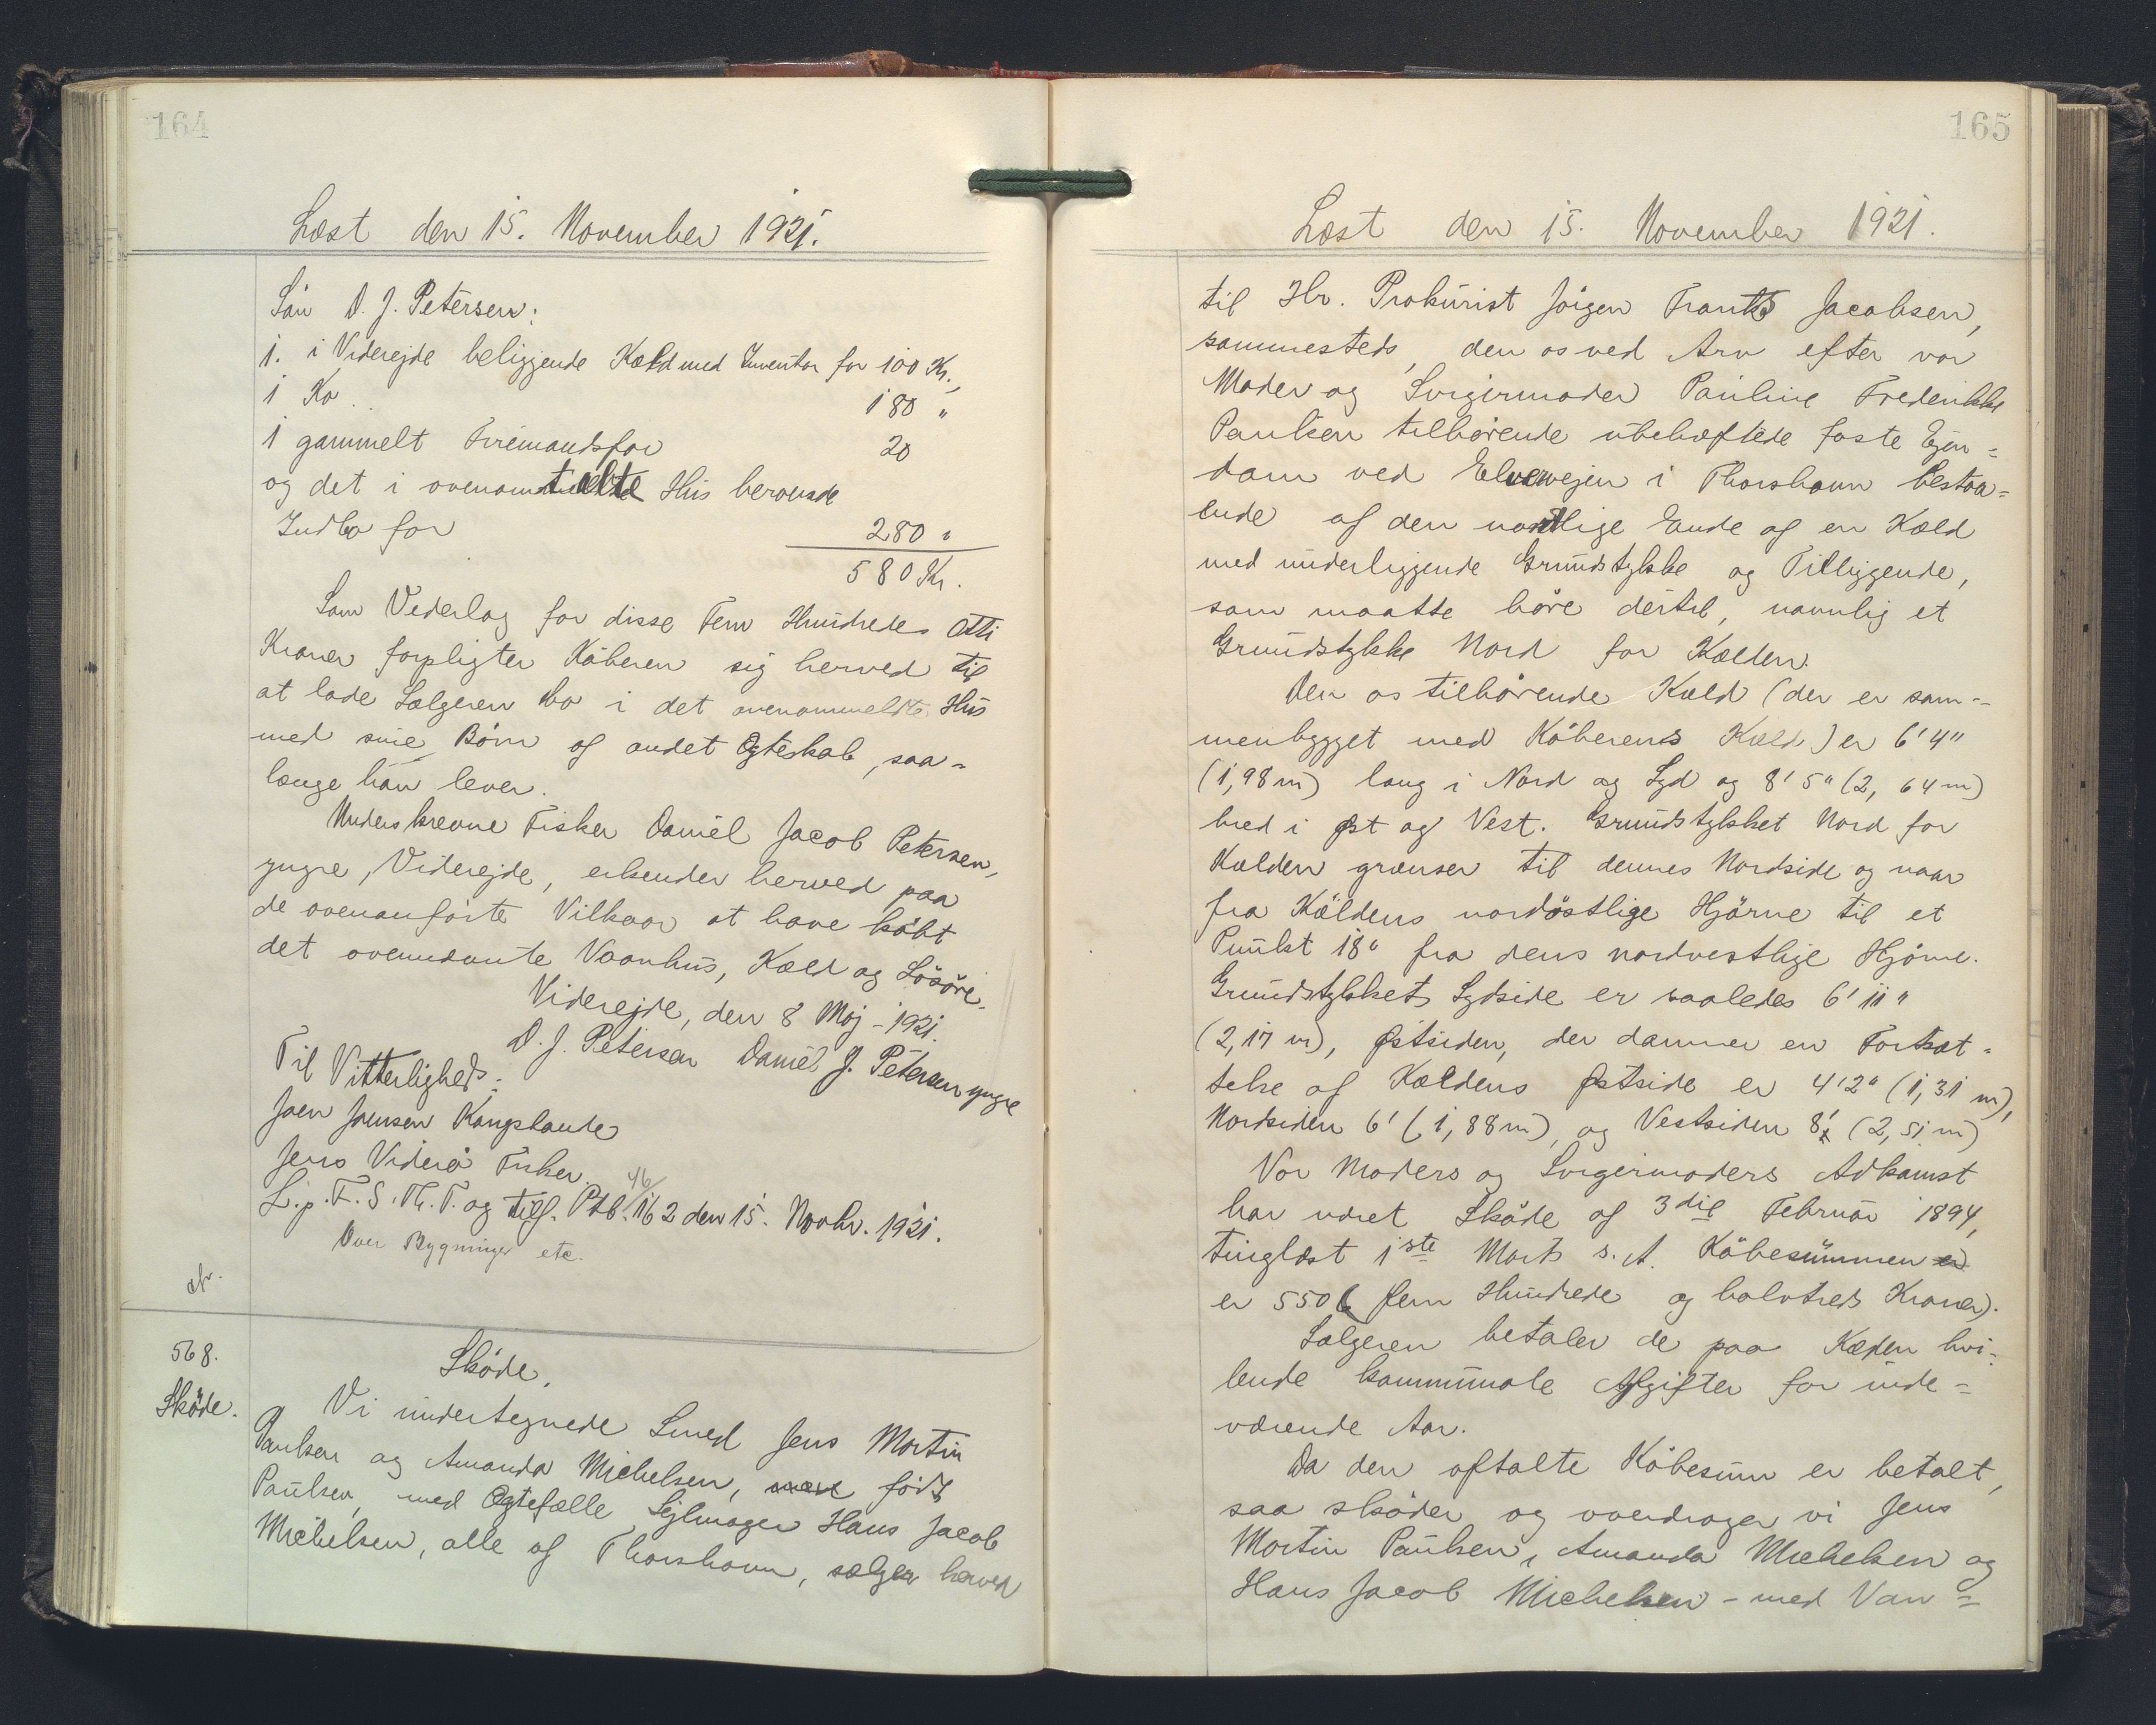 164
Læst den 15. November 1921.
Sön D. J. Petersen:
1. i Viderejde beliggende Kæld med Inventar for 100 Kr.,
1 Ko 180 "
1 gammelt Firemandsfar 20
og det i ovenomtalte Hus beroende
Indbo for 280 "
580 Kr.
Som Vederlag for disse Fem Hundrede Otti
Kroner forpligter Köberen sig herved til
at lade Sælgeren bo i det ovenommeldte Hus
med sine Börn af andet Ægteskab, saa-
længe han lever.
Underskrevne Fisker Daniel Jacob Petersen,
yngre, Viderejde, erkender herved paa
de ovenanförte Vilkaar at have köbt
det ovennævnte Vaanhus, Kæld og Lösöre.
Viderejde, den 8 Maj - 1921.
D. J. Petersen Daniel J. Petersen yngre
Til Vitterlighed:
Joen Joensen Kongsbonde
Jens Viderö Fisker.
L. p. F. S. Th. T. og tilf. Ptb. 46/162 den 15. Novbr. 1921.
Over Bygninger etc.
568.
Sköde.
Sköde.
Vi undertegnede Smed Jens Martin
Paulsen og Amanda Michelsen, födt
Paulsen, med Ægtefælle Sejlmager Hans Jacob
Michelsen, alle af Thorshavn, sælger herved
165
Læst den 15. November 1921.
til Hr. Prokurist Jörgen Frants Jacobsen,
sammesteds, den os ved Arv efter vor
Moder og Svigermoder Pauline Frederikke
Paulsen tilhörende ubehæftede faste Ejen-
dom ved Elvervejen i Thorshavn bestaa-
ende af den nordlige Ende af en Kæld
med underliggende Grundstykke og Tilliggende,
som maatte höre dertil, navnlig et
Grundstykke Nord for Kælden.
Den os tilhörende Kæld (der er sam-
menbygget med Köberens Kæld) er 6' 4"
(1,98 m) lang i Nord og Syd og 8' 5" (2,64 m)
bred i Øst og Vest. Grundstykket Nord for
Kælden grænser til dennes Nordside og naar
fra Kældens nordöstlige Hjörne til et
Punkt 18" fra dens nordvestlige Hjörne.
Grundstykkets Sydside er saaledes 6' 11"
(2,17 m), Østsiden, der danner en Fortsæt-
telse af Kældens Østside er 4' 2" (1,31 m),
Nordsiden 6' (1,88 m), og Vestsiden 8' (2,51 m)
Vor Moders og Svigermoders Adkomst
har været Sköde af 3die Februar 1894,
tinglæst 1ste Marts s. A. Köbesummen er
er 550 (Fem Hundrede og halvtreds Kroner).
Sælgeren betaler de paa Kælden hvi-
lende kommunale Afgifter for inde-
værende Aar.
Da den aftalte Köbesum er betalt,
saa sköder og overdrager vi Jens
Martin Paulsen, Amanda Michelsen og
Hans Jacob Michelsen - med Van-